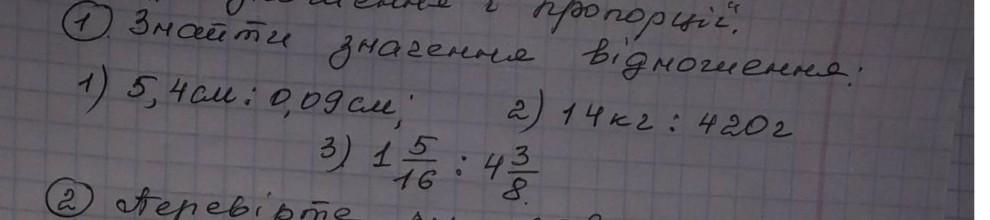 і пропорції".
① Знайти значення відношення:
1) 5,4см : 0,09см; 2) 14кг : 420г
3) 1 5/16 : 4 3/8.
② Перевірте